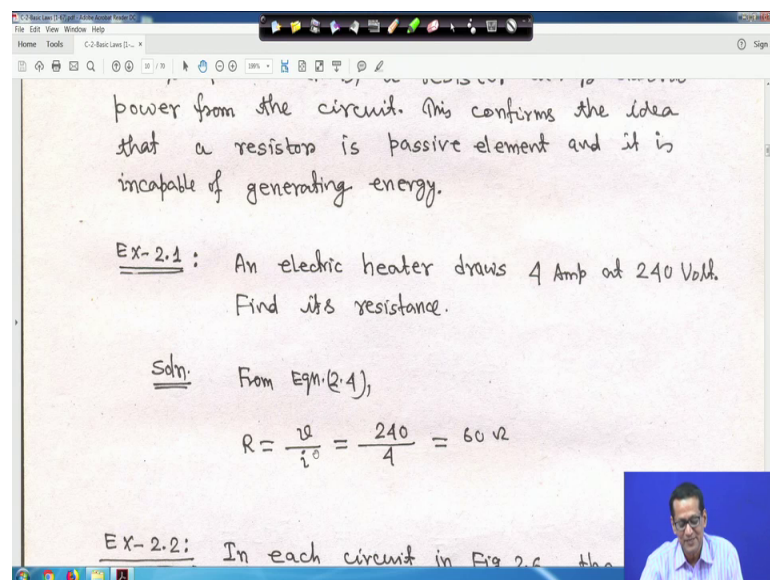 C-2-Basic Laws [1-67].pdf - Adobe Acrobat Reader DC
File Edit View Window Help
Home Tools C-2-Basic Laws [1-... × Sign
10 / 70 199%
power from the circuit. This confirms the idea
that a resistor is passive element and it is
incapable of generating energy.
Ex-2.1: An electric heater draws 4 Amp at 240 Volt.
Find its resistance.
Soln. From Eqn.(2.4),
R = v/i = 240/4 = 60 Ω
Ex-2.2: In each circuit in Fig 2.6, the